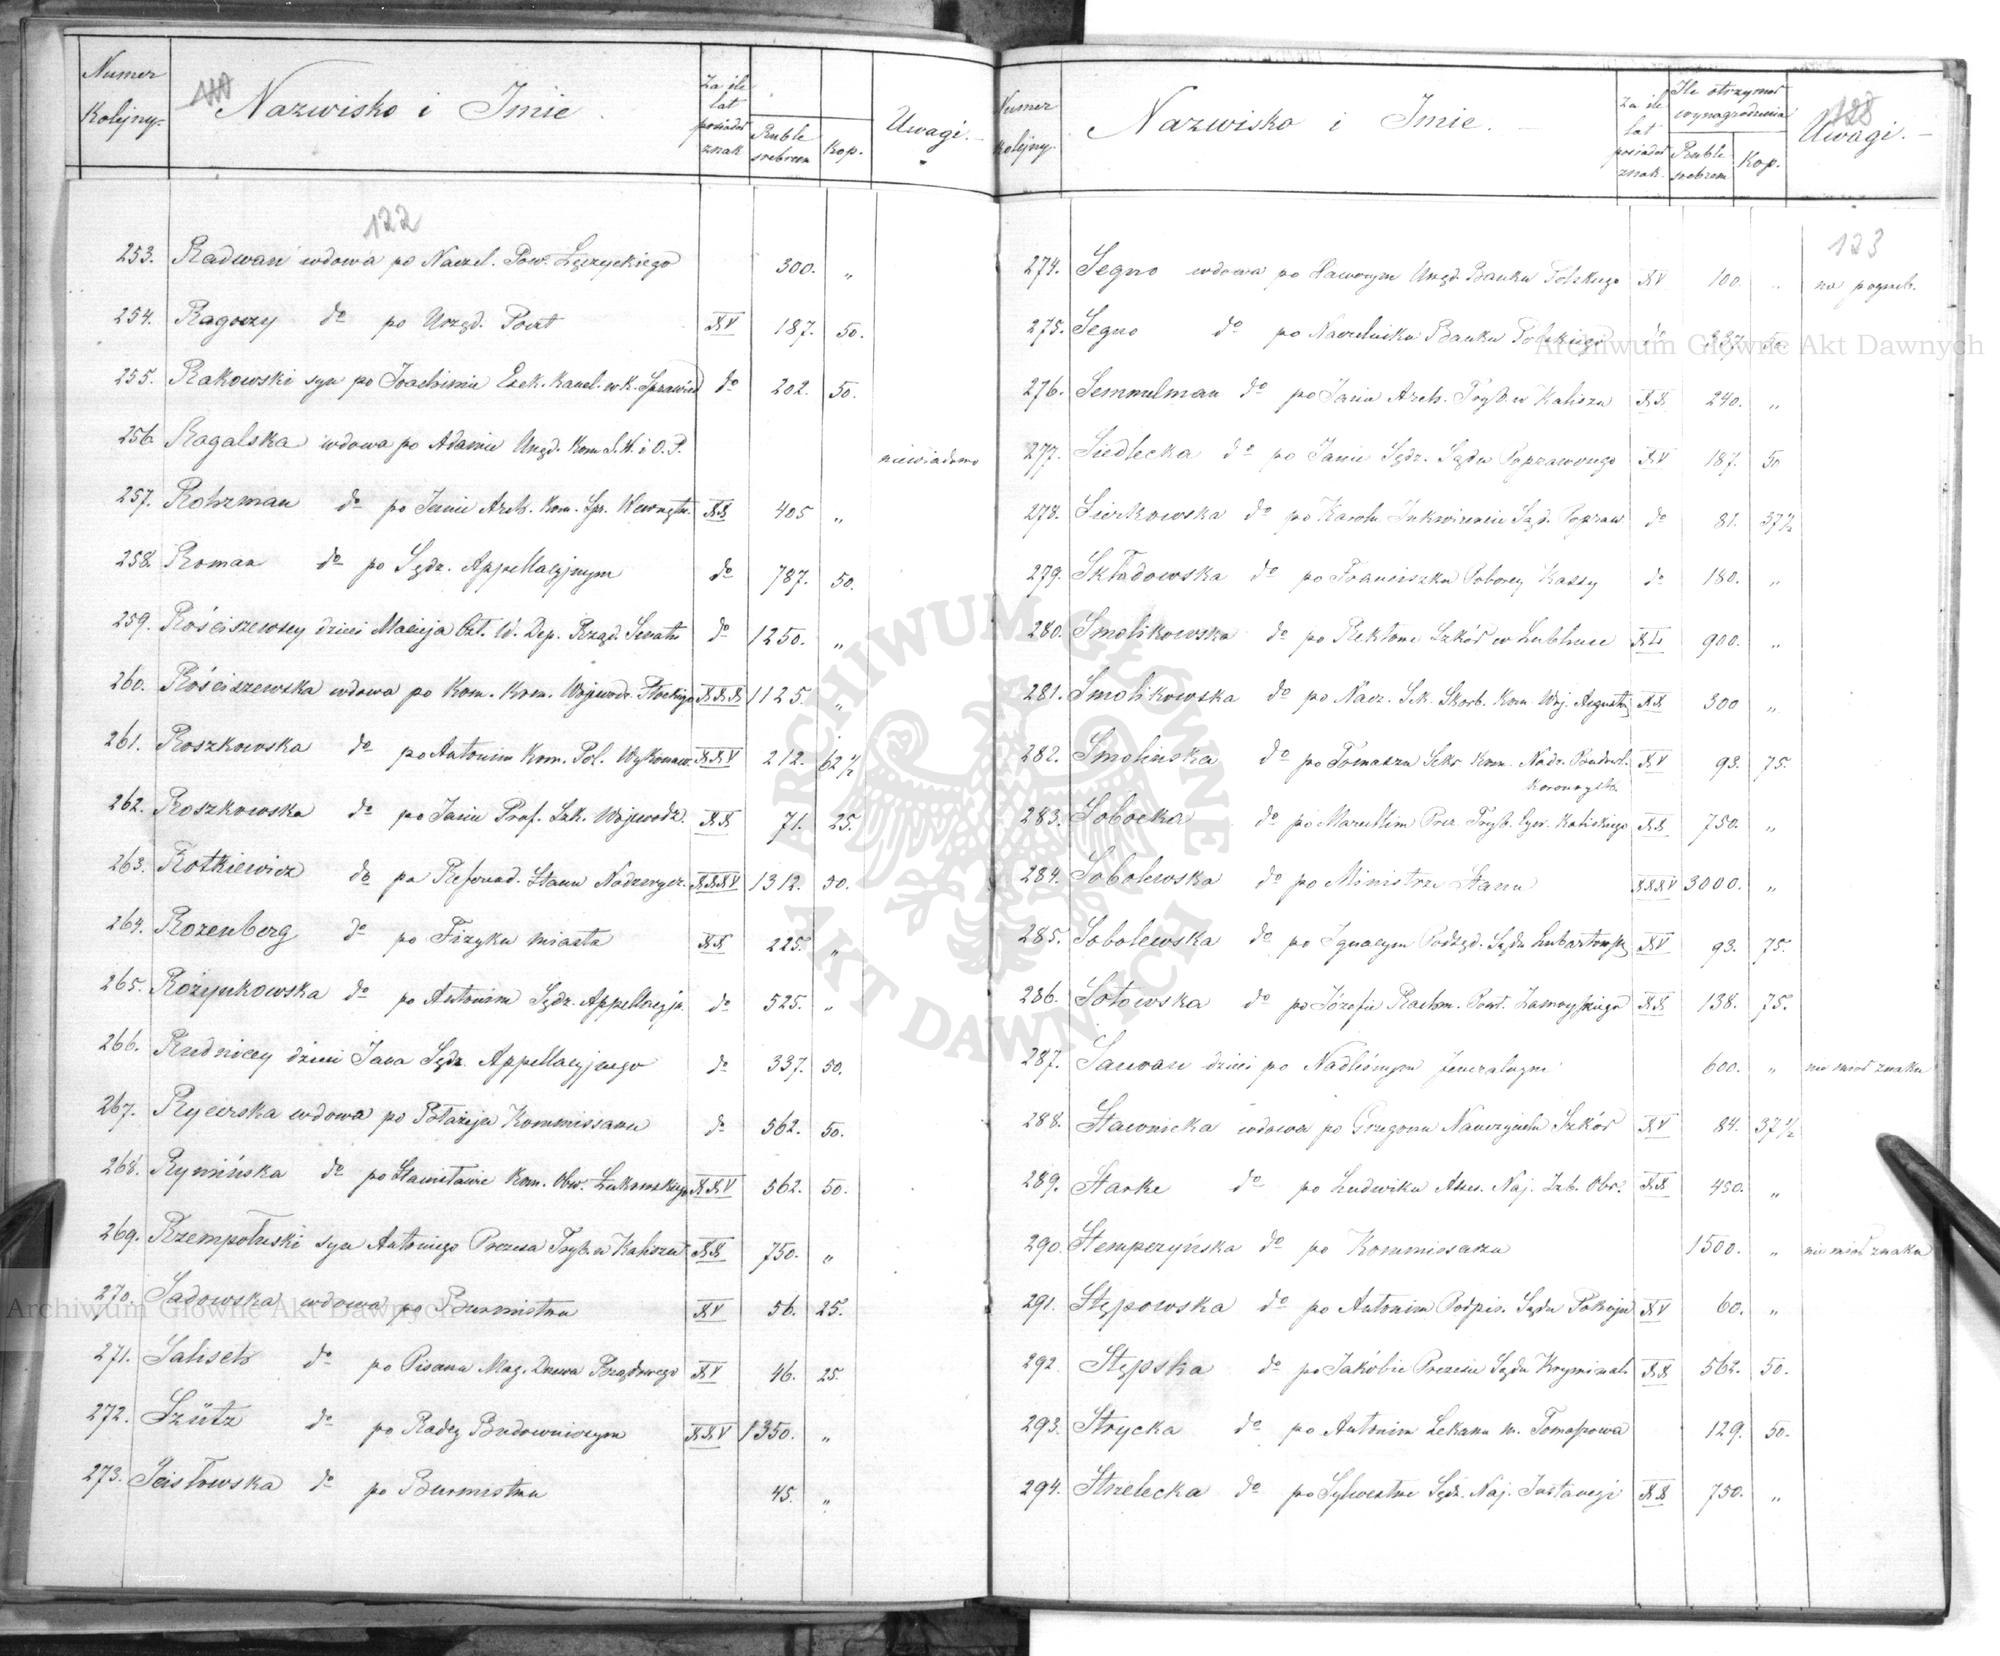 Numer Kolejny. Nazwisko i Imie. Za ile lat posiadał znak Ruble srebrem Kop. Uwagi.
122
253. Radwan wdowa po Naczel. Pow. Łęczyckiego 300. „
254. Ragoczy do po Urzęd. Poczt XV 187. 50.
255. Rakowski syn po Joachimie Exek. Kancel. w K. Sprawied do 202. 50.
256. Rogalska wdowa po Adamie Urzęd. Kom. S. W. i O. P. niewiadomo
257. Rohrman do po Janie Arch. Kom. Spr. Wewnętr. XX 405 „
258. Roman do po Sędz. Appellacyjnym do 787. 50.
259. Rościszewscy dzieci Macieja Czł. W. Dep. Rząd. Senatu do 1250. „
260. Rościszewska wdowa po Kom. Kom. Wojewodz. Płockiego XXX 1125. „
261. Roszkowska do po Antonim Kom. Pol. Wykonaw. XXV 212. 62 1/2
262. Roszkowska do po Janie Prof. Szk. Wojewodz. XX 71. 25.
263. Rotkiewicz do po Referend. Stanu Nadzwycz. XXXV 1312. 50.
264. Rozenberg do po Fizyku miasta XX 225. „
265. Rożynkowska do po Antonim Sędz. Appellacyjn. do 525. „
266. Rudniccy dzieci Jana Sędz. Appellacyjnego do 337. 50.
267. Rycerska wdowa po Kommissarzu do 562. 50.
268. Rymińska do po Stanisławie Kom. Obw. Łukowskiego XXV 562. 50.
269. Rzempołuski syn Antoniego Prezesa Tryb. w Kaliszu XX 750. „
270. Sadowska wdowa po Burmistrzu XV 56. 25.
271. Salisch do po Pisarzu Mag. Drzewa Rządowego XV 46. 25.
272. Szütz do po Radcy Budowniczym XXV 1350. „
273. Ścisłowska do po Burmistrzu 45. „
Numer Kolejny. Nazwisko i Imie. Za ile lat posiadał znak. Ile otrzymał wynagrodzenia Ruble srebrem Kop. Uwagi.
123
274. Segno wdowa po Urzęd. Banku Polskiego XV 100. „ na pogrzeb.
275. Segno do po Naczelniku Banku Polskiego do 337. 50.
276. Semmelman do po Janie Arch. Tryb. w Kaliszu XX 240. „
277. Siedlecka do po Janie Sędz. Sądu Poprawczego XV 187. 50
278. Sierkowska do po Karolu Inkwirencie Sąd. Popraw. do 81. 37 1/2
279. Składowska do po Franciszku Poborcy Kassy do 180. „
280. Smolikowska do po Rektorze Szkół w Lublinie XL 900. „
281. Smolikowska do po Nacz. Sek. Skarb. Kom. Woj. August. XX 300 „
282. Smolińska do po Tomaszu Sekr. Kom. Nadz. XV 93. 75.
283. Sobocka do po Marcellim Prez. Tryb. Cyw. Kaliskiego XX 750. „
284. Sobolewska do po Ministrze Stanu XXXV 3000. „
285. Sobolewska do po Ignacym Podsęd. Sądu Lubartowsk. XV 93. 75.
286. Sotowska do po Józefie Rachm. Powt. Zamoyskiego XX 138. 75.
287. Sauvan dzieci po Nadleśnym Jeneralnym 600. „ nie miał znaku
288. Stawnicka wdowa po Grzegorzu Nauczycielu Szkół XV 84. 37 1/2
289. Starke do po Ludwiku Asses. Naj. Izb. Obr. XX 450. „
290. Stempczyńska do po Kommissarzu 1500. „ nie miał znaku
291. Stępowska do po Antonim Podpis. Sądu Pokoju XV 60. „
292. Stępska do po Jakóbie Prezesie Sądu Kryminal. XX 562. 50.
293. Strycka do po Antonim Lekarzu m. Tomaszowa 129. 50.
294. Strzelecka do po Sylwestrze Sędz. Naj. Instancyi XX 750. „
Archiwum Główne Akt Dawnych
ARCHIWUM GŁÓWNE AKT DAWNYCH
Archiwum Główne Akt Dawnych